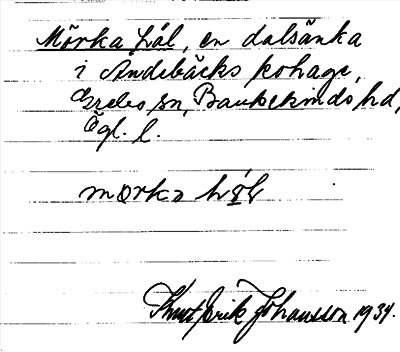 Mörka hål, en dalsänka
i Andebäcks kohage,
Grebo sn, Bankekinds hd,
Ögl. l.
morka hǫl
Knut Erik Johansson 1934.